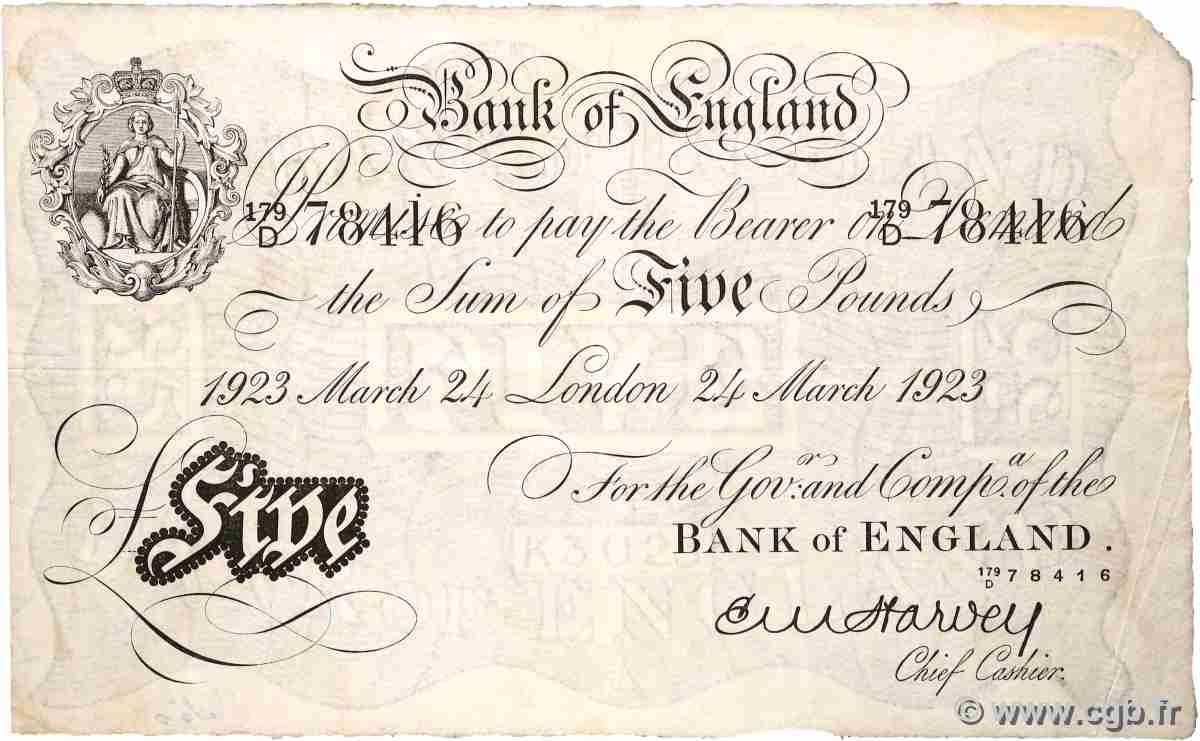 Bank of England
I Promise to pay the Bearer on Demand
179/D 78416 179/D 78416
the Sum of Five Pounds
1923 March 24 London 24 March 1923
For the Gov.r and Comp.a of the
Five
BANK of ENGLAND.
179/D 78416
E M Harvey
Chief Cashier.
© www.cgb.fr